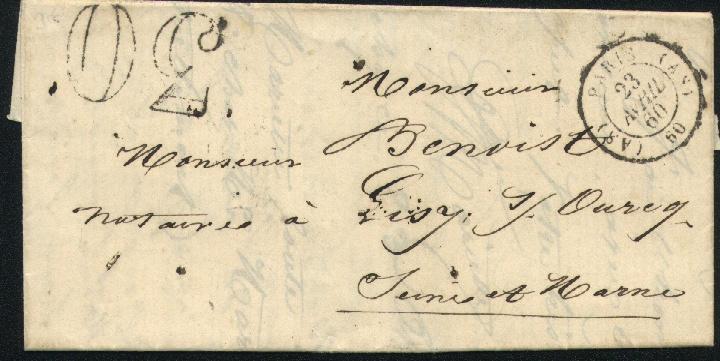 30
PARIS (AS)
23
AVRIL
60
(AS) 60
Monsieur
Monsieur Benoist
notaire à Lisy S/ Ourcq
Seine et Marne